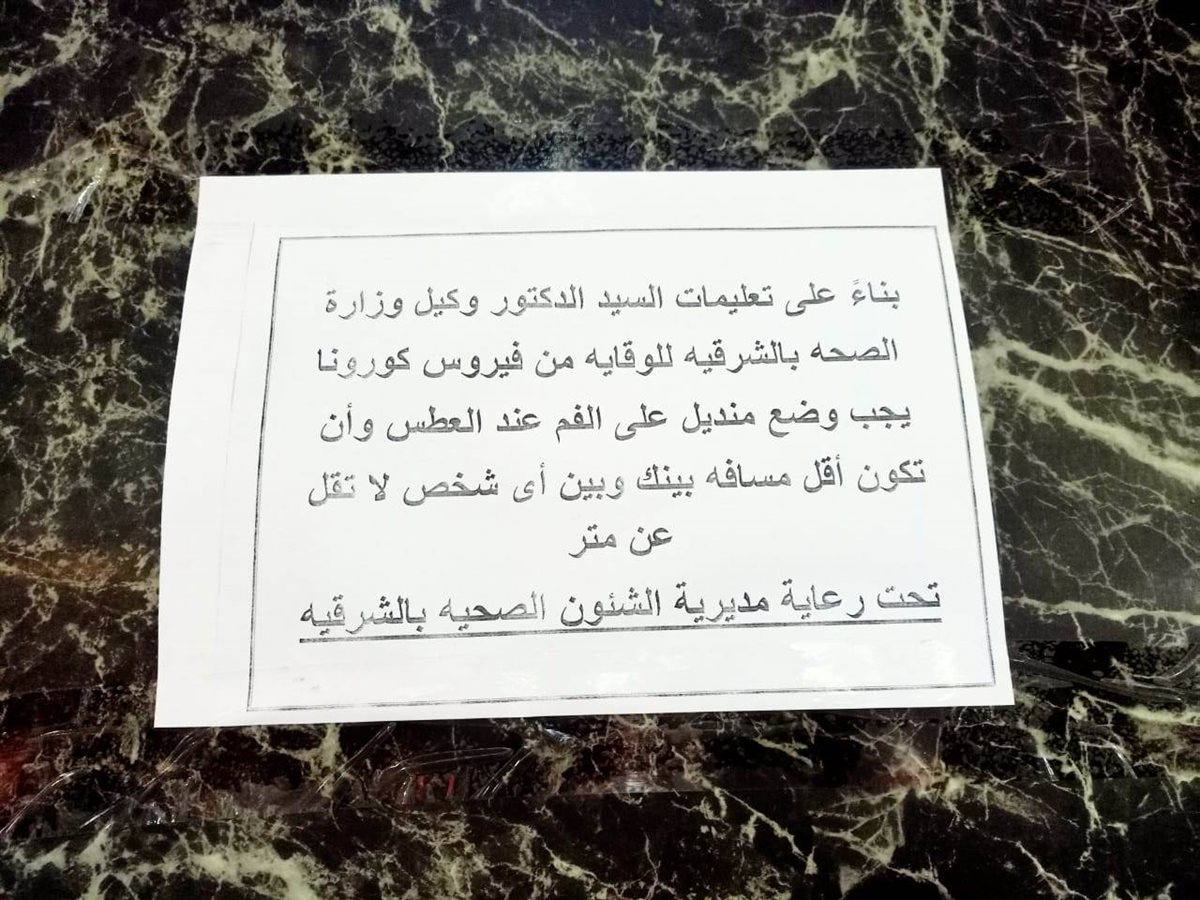 بناءً على تعليمات السيد الدكتور وكيل وزارة
الصحه بالشرقيه للوقايه من فيروس كورونا
يجب وضع منديل على الفم عند العطس وأن
تكون أقل مسافه بينك وبين أى شخص لا تقل
عن متر
تحت رعاية مديرية الشئون الصحيه بالشرقيه